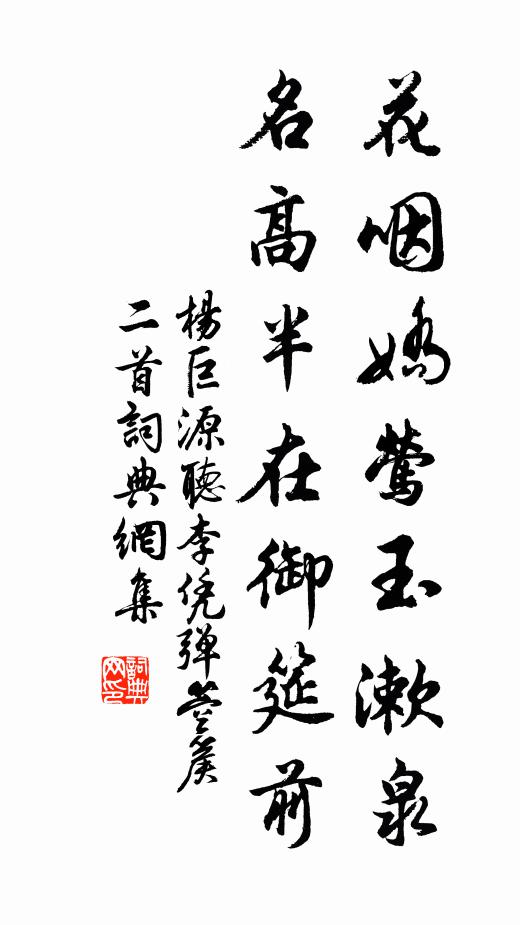 花咽嬌鶯玉漱泉
名高半在御筵前
楊巨源聽李凭彈箜篌
二首詞典網集
詞典網印